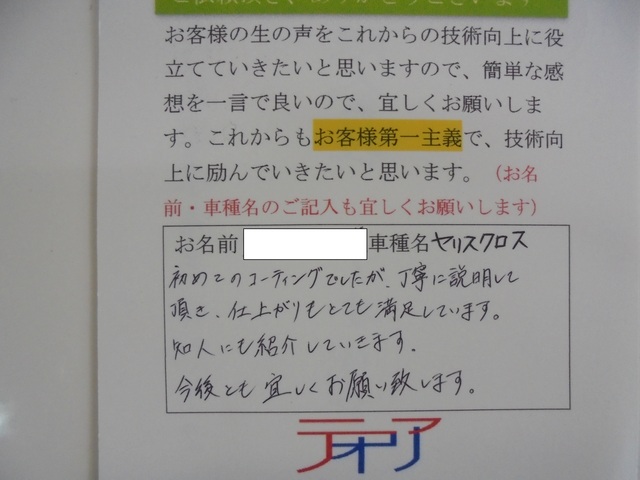 ご依頼頂き、ありがとうございます
お客様の生の声をこれからの技術向上に役
立てていきたいと思いますので、簡単な感
想を一言で良いので、宜しくお願いしま
す。これからもお客様第一主義で、技術向
上に励んでいきたいと思います。（お名
前・車種名のご記入も宜しくお願いします）
お名前 車種名ヤリスクロス
初めてのコーティングでしたが、丁寧に説明して
頂き、仕上がりもとても満足しています。
知人にも紹介していきます.
今後とも宜しくお願い致します。
テオリア